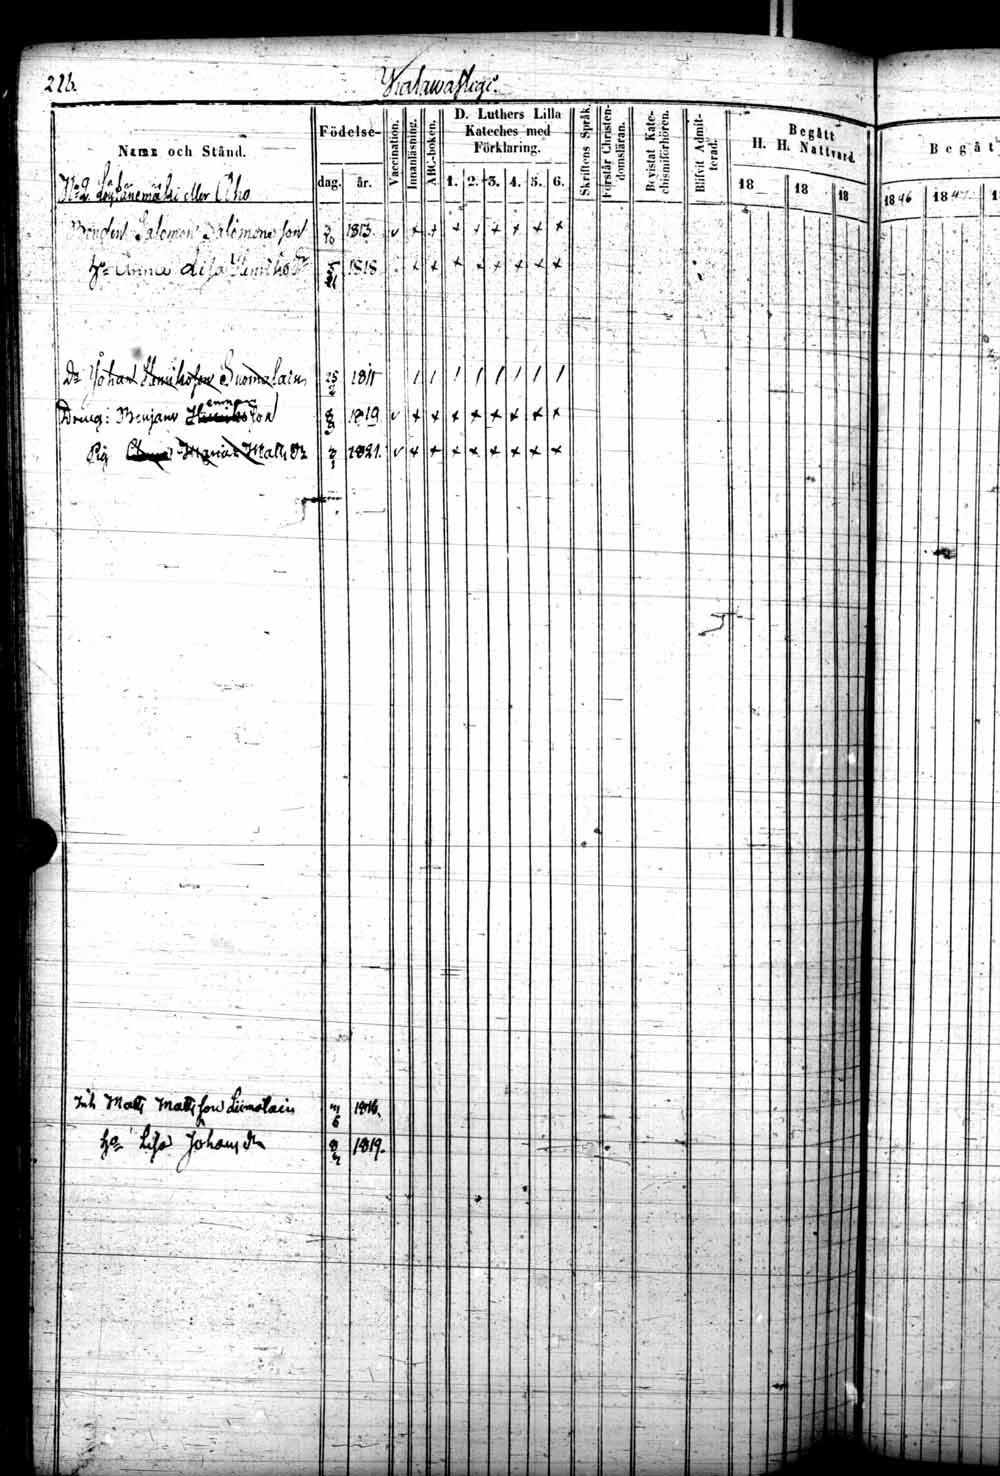 226.
Namn och Stånd.
Födelse-
dag. år.
Vaccination.
Innanläsning.
ABC-boken.
D. Luthers Lilla
Kateches med
Förklaring.
1. 2. 3. 4. 5. 6.
Skriftens Språk.
Förstår Christen-
domsläran.
Bevistat Kate-
chismiförhören.
Blifvit Admit-
terad.
Begått
H. H. Nattvard.
18 18 18
Begått
1846 1847 1
N:o 2. eller Aho
Bonden Salomon Salomonsson 1813. v + + + + + + + +
H:u Anna Lisa Henriksd:r 1818 + + + + + + + +
Johan Henriksson Suomalain 25/2 1811 / / / / / / / /
Dräng: Benjam 1819 v + + + + + + + +
Pig Maria Matts d:r 1821. v + + + + + + + +
Inh Matts Mattsson Liimatain 1816.
H:u Lisa Johans d:r 1819.